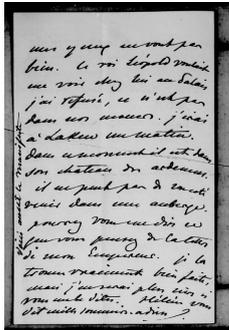 mes yeux ne vont pas
bien. Le roi Léopold voulait
me voir chez lui au Palais
j'ai refusé, ce n'est pas
dans nos mœurs. j'irais
à Laeken un matin.
dans un moment il est dans
son château des Ardennes.
il ne peut pas
venir dans une auberge.
pourrez vous me dire ce
que vous pensez de la lettre
de mon Empereur. je la
trouve vraiment bien faite,
mais j'en serais plus sûr si
vous me le dites.
dit mille adieu
Voici aussi le manifeste